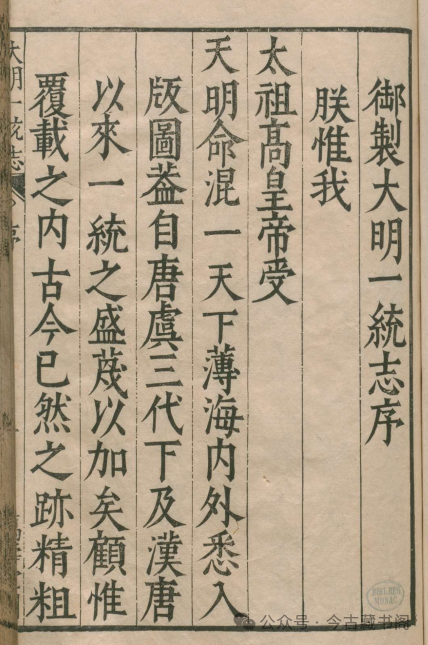 御製大明一統志序
朕惟我
太祖髙皇帝受
天明命混一天下薄海内外悉入
版圖葢自唐虞三代下及漢唐
以來一統之盛蔑以加矣顧惟
覆載之内古今已然之跡精粗
大明一统志
序
公众号·今古藏书阁